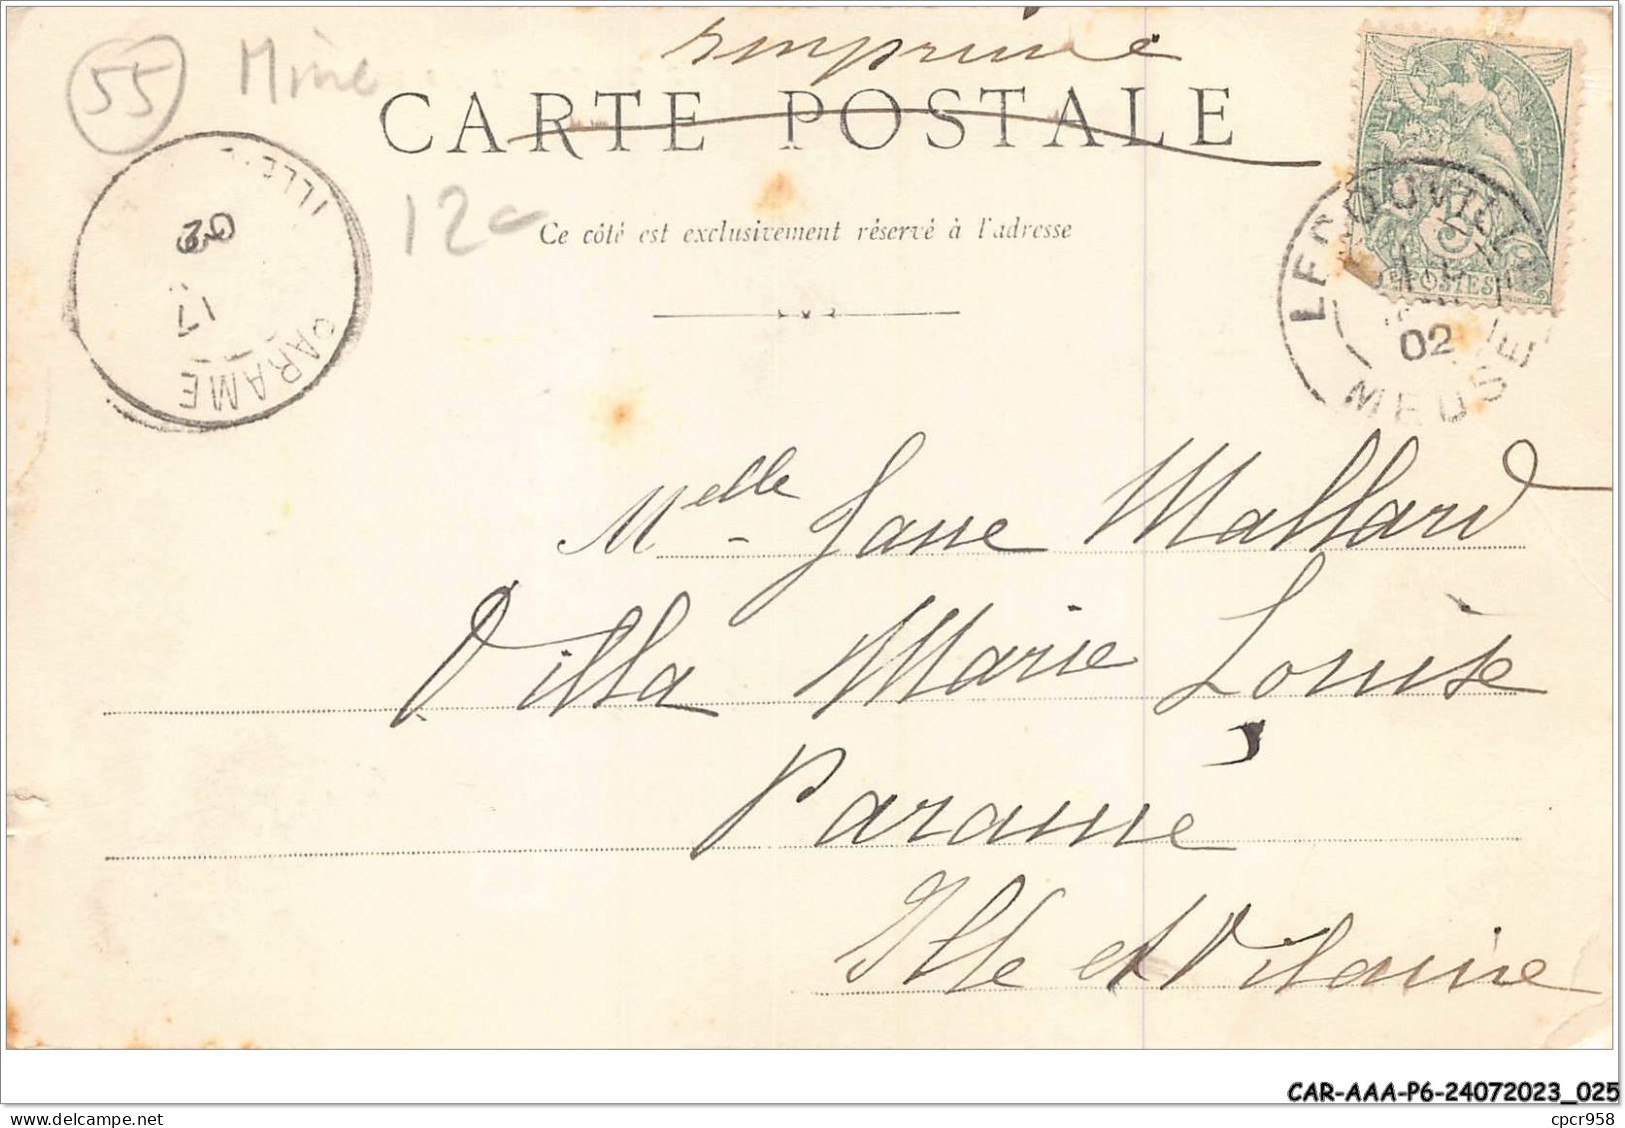 Imprimé
55 Mine
CARTE POSTALE
12
Ce côté est exclusivement réservé à l'adresse
ILLE
02
17
PARAME
5
POSTES
02
MEUSE
Melle Jane Mallard
Villa Marie Louise
Paramé
Ille et Vilaine
CAR-AAA-P6-24072023_025
cpcr958